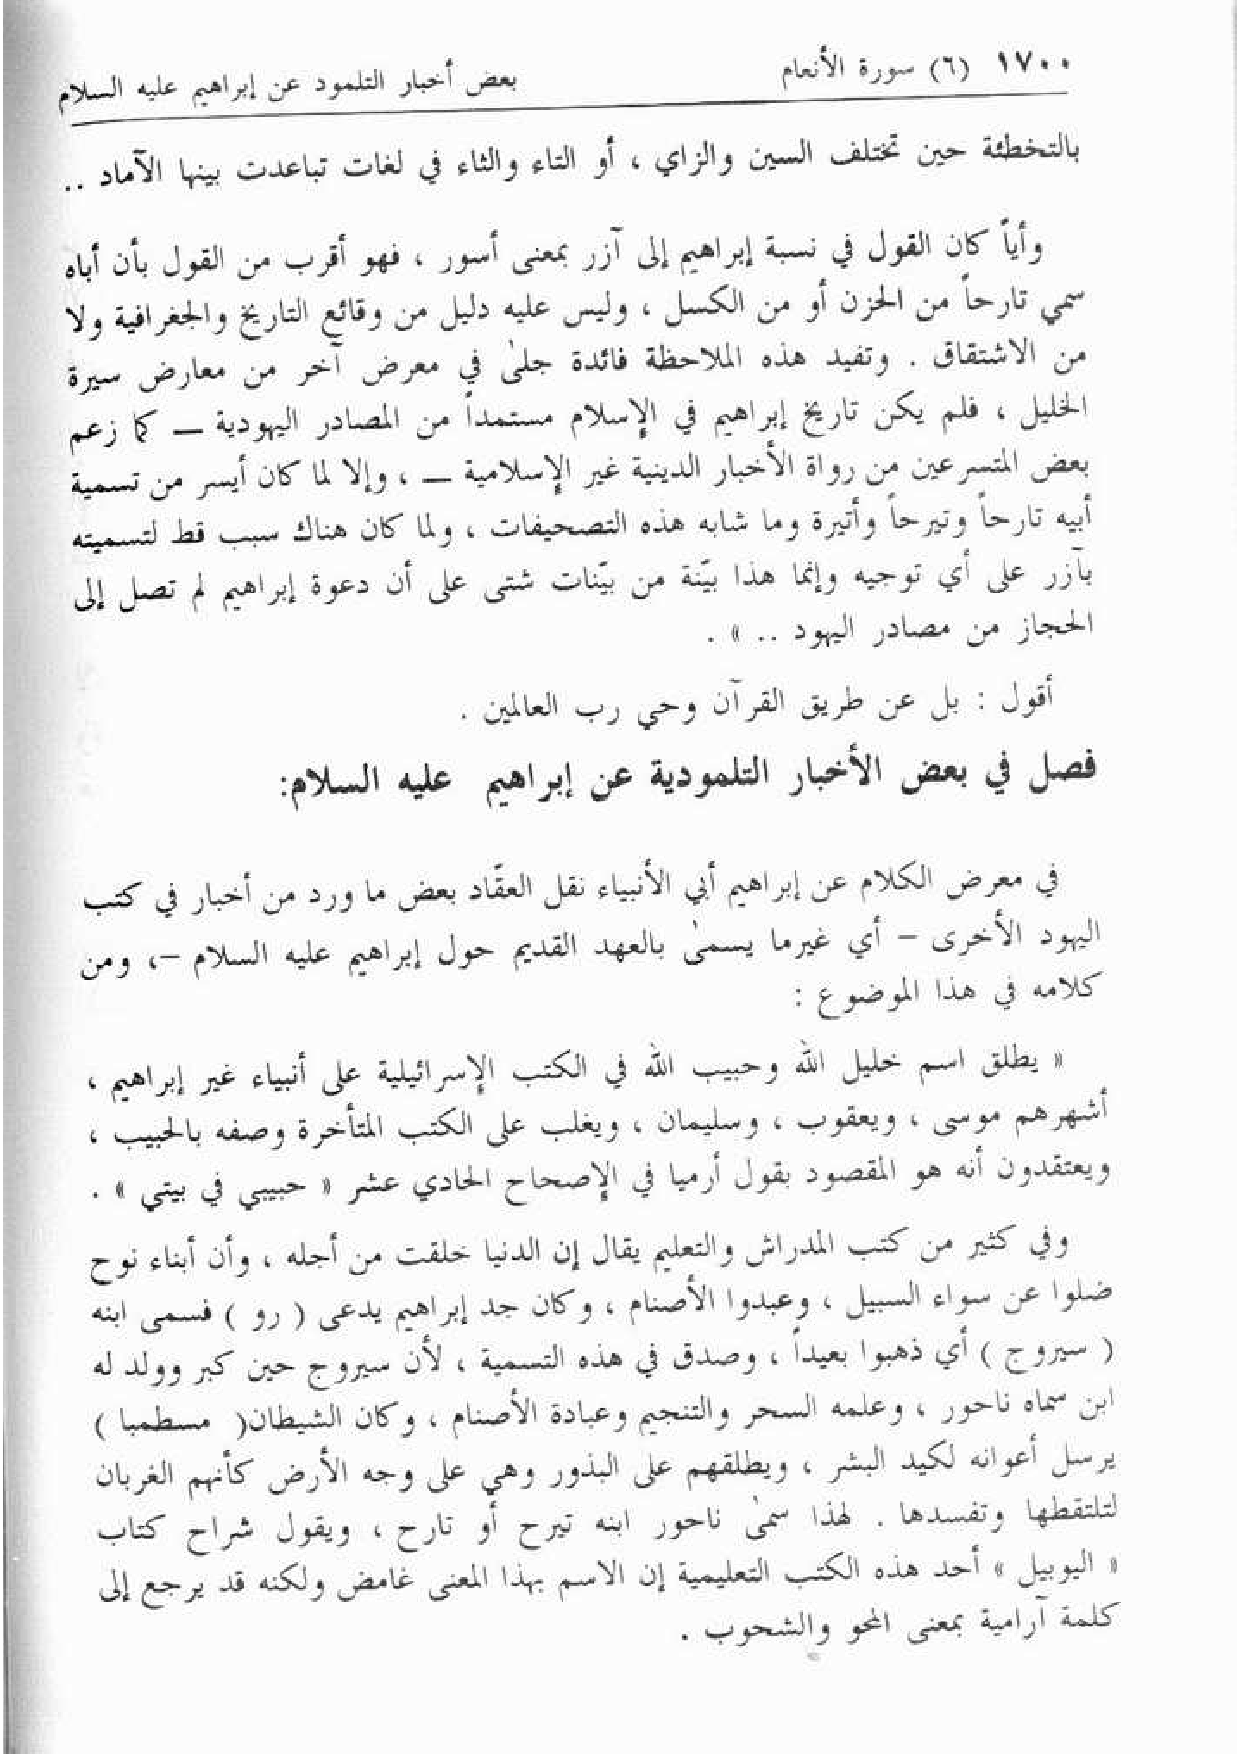 ١٧٠٠ (٦) سورة الأنعام بعض أخبار التلمود عن إبراهيم عليه السلام
بالتخطئة حين تختلف السين والزاي ، أو التاء والثاء في لغات تباعدت بينها الآماد ..
وأياً كان القول في نسبة إبراهيم إلى آزر بمعنى أسور ، فهو أقرب من القول بأن أباه
سمي تارحاً من الحزن أو من الكسل ، وليس عليه دليل من وقائع التاريخ والجغرافية ولا
من الاشتقاق . وتفيد هذه الملاحظة فائدة جلىٰ في معرض آخر من معارض سيرة
الخليل ، فلم يكن تاريخ إبراهيم في الإسلام مستمداً من المصادر اليهودية ــ كما زعم
بعض المتسرعين من رواة الأخبار الدينية غير الإسلامية ــ ، وإلا لما كان أيسر من تسمية
أبيه تارحاً وتيرحاً وأتيرة وما شابه هذه التصحيفات ، ولما كان هناك سبب قط لتسميته
بآزر على أي توجيه وإنما هذا بيّنة من بيّنات شتى على أن دعوة إبراهيم لم تصل إلى
الحجاز من مصادر اليهود .. » .
أقول : بل عن طريق القرآن وحي رب العالمين .
فصل في بعض الأخبار التلمودية عن إبراهيم عليه السلام:
في معرض الكلام عن إبراهيم أبي الأنبياء نقل العقّاد بعض ما ورد من أخبار في كتب
اليهود الأخرى – أي غيرما يسمىٰ بالعهد القديم حول إبراهيم عليه السلام –، ومن
كلامه في هذا الموضوع :
« يطلق اسم خليل الله وحبيب الله في الكتب الإسرائيلية على أنبياء غير إبراهيم ،
أشهرهم موسى ، ويعقوب ، وسليمان ، ويغلب على الكتب المتأخرة وصفه بالحبيب ،
ويعتقدون أنه هو المقصود بقول أرميا في الإصحاح الحادي عشر « حبيبي في بيتي » .
وفي كثير من كتب المدراش والتعليم يقال إن الدنيا خلقت من أجله ، وأن أبناء نوح
ضلوا عن سواء السبيل ، وعبدوا الأصنام ، وكان جد إبراهيم يدعى ( رو ) فسمى ابنه
( سيروج ) أي ذهبوا بعيداً ، وصدق في هذه التسمية ، لأن سيروج حين كبر وولد له
ابن سماه ناحور ، وعلمه السحر والتنجيم وعبادة الأصنام ، وكان الشيطان( مسطمبا )
يرسل أعوانه لكيد البشر ، ويطلقهم على البذور وهي على وجه الأرض كأنهم الغربان
لتلتقطها وتفسدها . لهذا سمىٰ ناحور ابنه تيرح أو تارح ، ويقول شراح كتاب
« اليوبيل » أحد هذه الكتب التعليمية إن الاسم بهذا المعنى غامض ولكنه قد يرجع إلى
كلمة آرامية بمعنى المحو والشحوب .